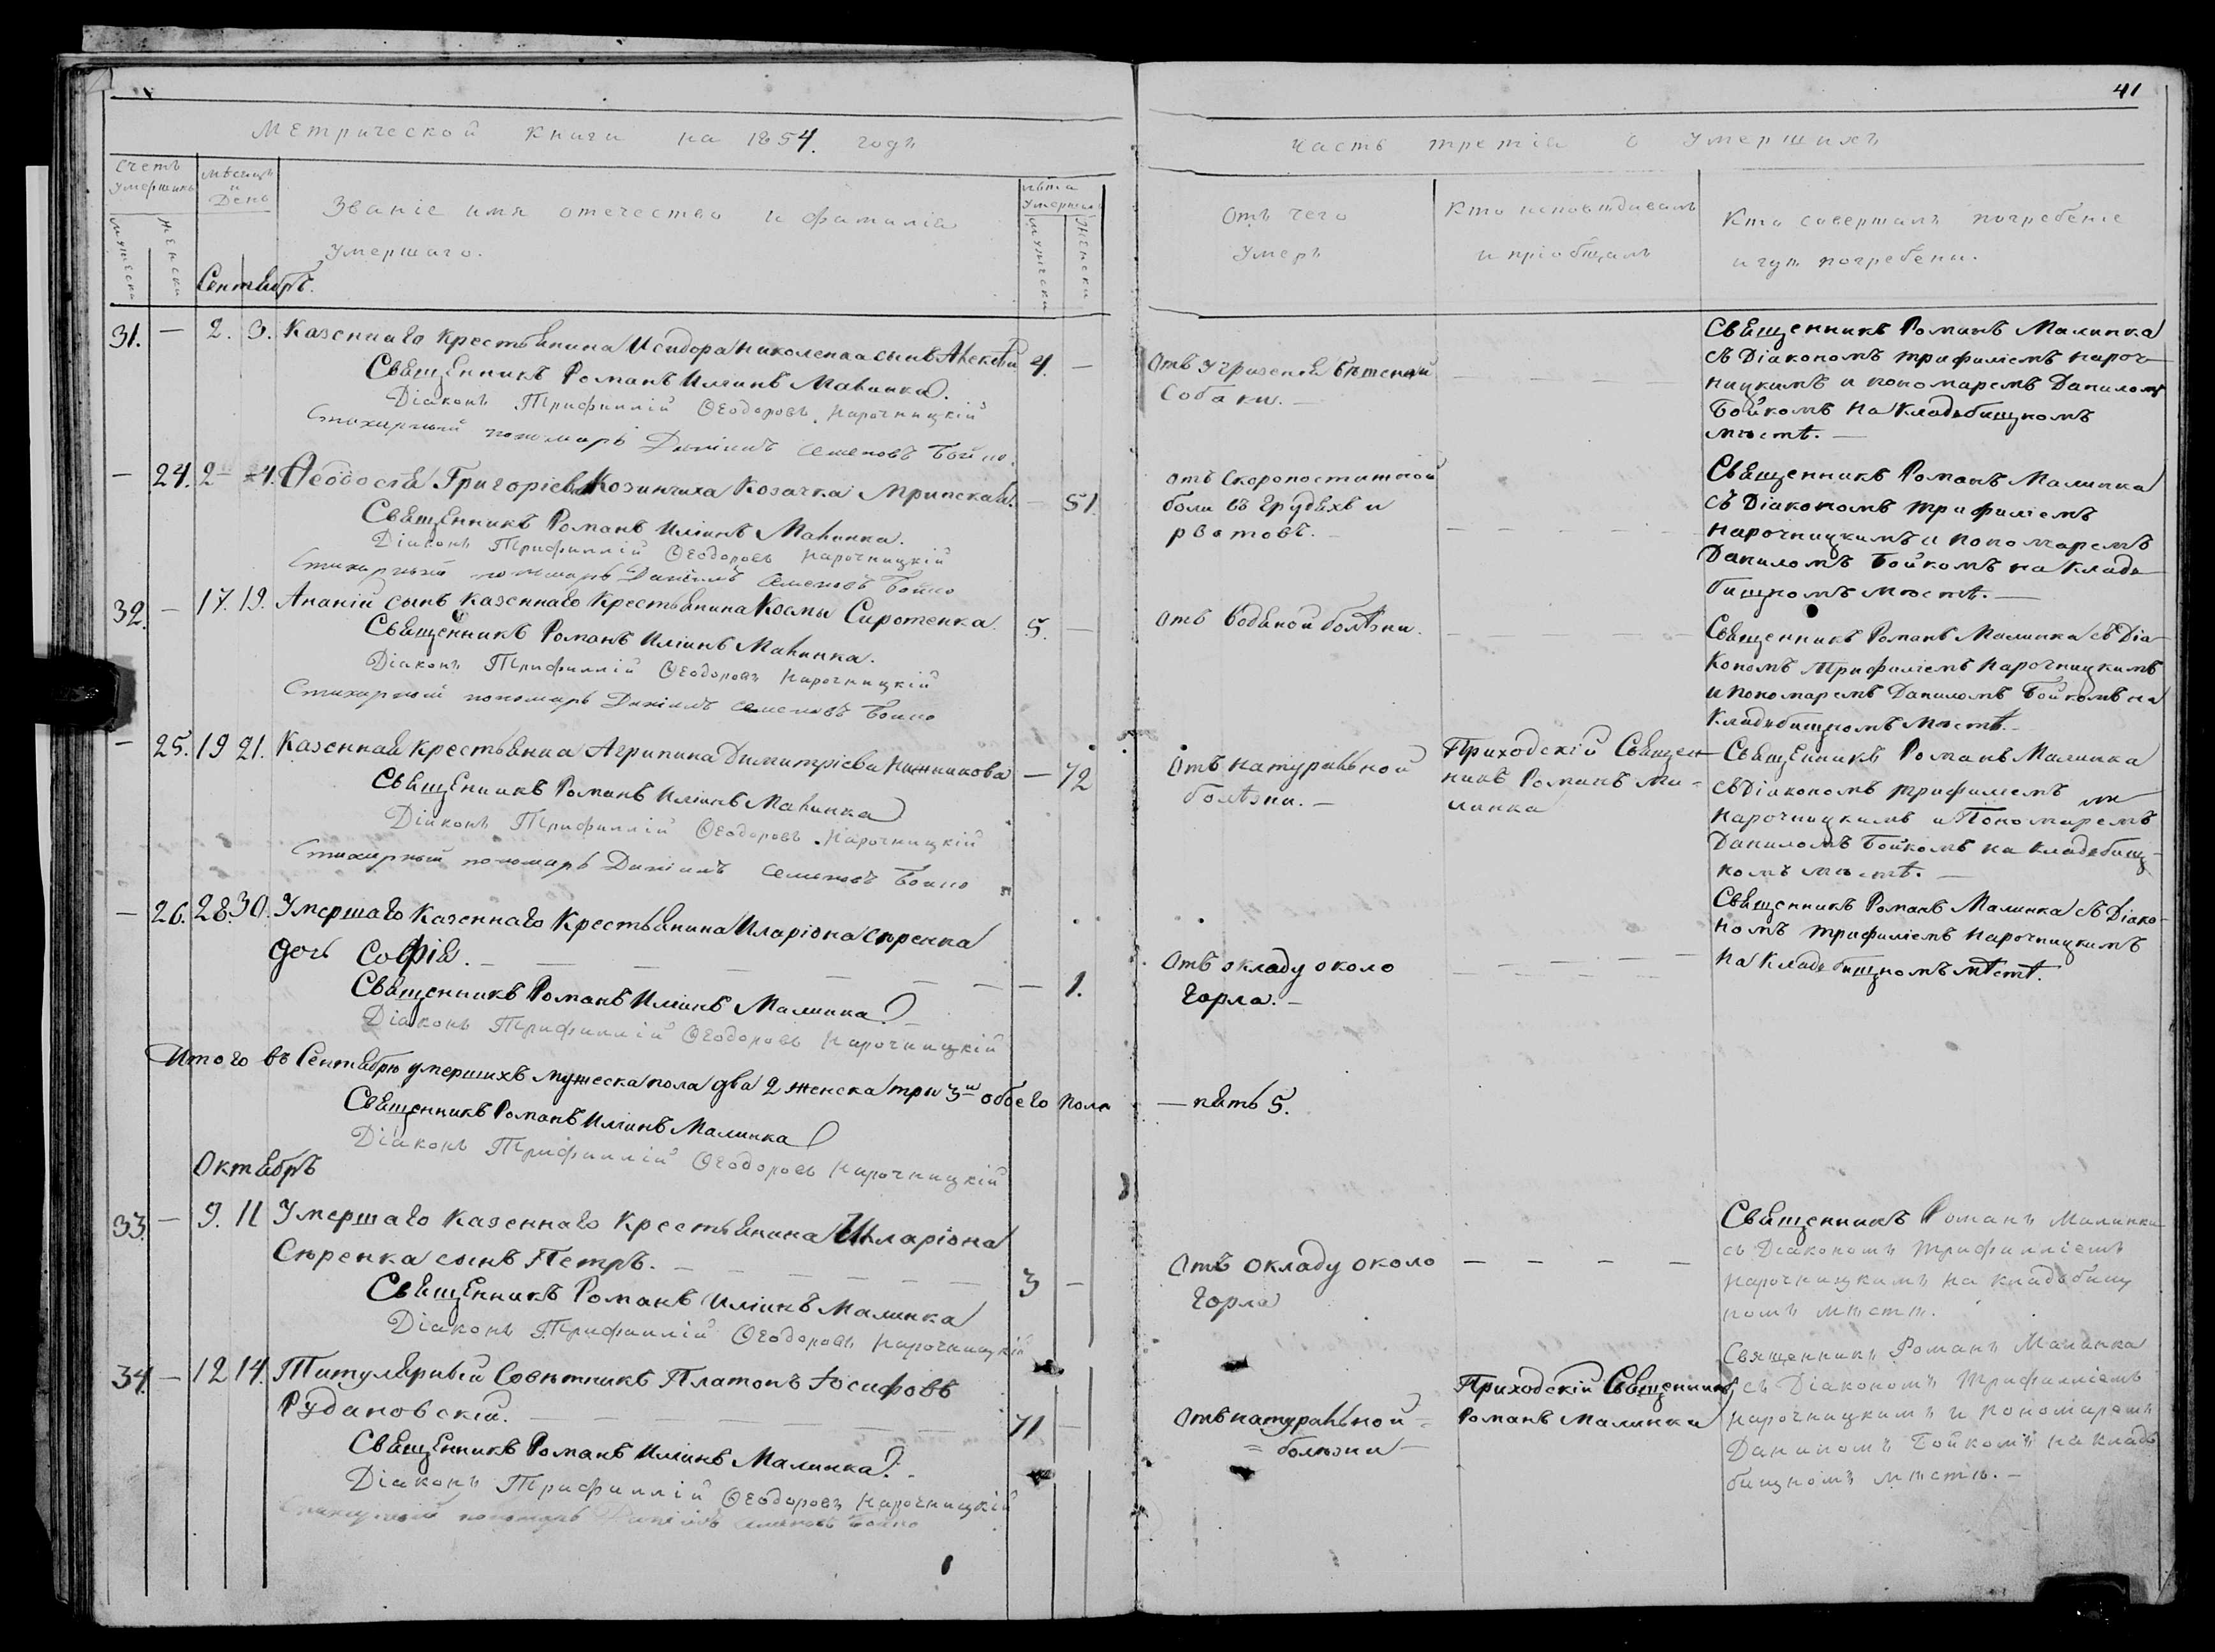 41
Метрической книги на 1854. годъ
часть третiя о умершихъ
Счетъ умершихъ
мѣсяцъ и День
Званiе имя отечество и фамилiя умершаго.
лѣта умершаго
Отъ чего умеръ
Кто исповѣдывалъ и прiобщалъ
Кто совершалъ погребенiе и гдѣ погребены.
мужеска
женска
мужески
женски
Сентябрь.
31. — 2. 3. Казеннаго Крестьянина Исидора Николенка сынъ Алексѣй 4. —
Священникъ Романъ Илiинъ Малинка.
Дiаконъ Трифиллiй Ѳеодоровъ Нарочницкiй
Стихарный пономарь Данiилъ Семеновъ Бойко.
Отъ Угризенiя бѣшеной
Собаки. —
Священникъ Романъ Малинка
съ Дiакономъ трифилiемъ нароч-
ницкимъ и пономаремъ Даниломъ
Бойкомъ на Кладобищномъ
мѣстѣ. —
— 24. 2 — 4. Ѳеодосiя Григорiева Козинчиха Козачка Мринская. — 51
Священникъ Романъ Илiинъ Малинка.
Дiаконъ Трифиллiй Ѳеодоровъ Нарочницкiй
Стихарный пономарь Данiилъ Семеновъ Бойко
отъ Скоропостижной
боли въ Грудяхъ и
рвотовъ. —
Священникъ Романъ Малинка
съ Дiакономъ трифилiемъ
Нарочницкимъ и пономаремъ
Даниломъ Бойкомъ на Кладо-
бищномъ мѣстѣ. —
32. — 17. 19. Ананiй сынъ Казеннаго Крестьянина Космы Сиротенка. 5. —
Священникъ Романъ Илiинъ Малинка.
Дiаконъ Трифиллiй Ѳеодоровъ Нарочницкiй
Стихарный пономарь Данiилъ Семеновъ Бойко
Отъ водяной болѣзни.
Священникъ Романъ Малинка съ Дiа-
Кономъ Трифилiемъ Нарочницкимъ
и Пономаремъ Даниломъ Бойкомъ на
Кладобищномъ мѣстѣ. —
— 25. 19 21. Казенная Крестьянка Агрипина Димитрiева — 72
Священникъ Романъ Илiинъ Малинка
Дiаконъ Трифиллiй Ѳеодоровъ Нарочницкiй
Стихарный пономарь Данiилъ Семеновъ Бойко
Отъ натуральной
болѣзни. —
Приходскiй Священ-
никъ Романъ Ма-
линка
Священникъ Романъ Малинка
съ Дiакономъ трифилiемъ
Нарочницкимъ и Пономаремъ
Даниломъ Бойкомъ на Кладобищ-
номъ мѣстѣ. —
— 26. 28. 30. Умершаго Казеннаго Крестьянина Иларiона Сѣренка
дочь Софiя. — 1.
Священникъ Романъ Илiинъ Малинка
Дiаконъ Трифиллiй Ѳеодоровъ Нарочницкiй
Отъ окладу около
Горла. —
Священникъ Романъ Малинка съ Дiако-
номъ трифилiемъ Нарочницкимъ
на Кладобищномъ мѣстѣ.
Итого въ Сентябрѣ умершихъ мужеска пола два 2 женска три 3 и обоего пола — пять 5.
Священникъ Романъ Илiинъ Малинка
Дiаконъ Трифиллiй Ѳеодоровъ Нарочницкiй
Октябрь
33. — 9. 11 Умершаго Казеннаго Крестьянина Иларiона
Сѣренка сынъ Петръ. 3 —
Священникъ Романъ Илiинъ Малинка
Дiаконъ Трифиллiй Ѳеодоровъ Нарочницкiй
Отъ окладу около
Горла
Священникъ Романъ Малинка
съ Дiакономъ Трифиллiемъ
Нарочницкимъ на кладобищ
номъ мѣстѣ.
34. — 12 14. Титулярный Совѣтникъ Платонъ Iосифовъ
Рудановскiй. 71 —
Священникъ Романъ Илiинъ Малинка.
Дiаконъ Трифиллiй Ѳеодоровъ Нарочницкiй
Стихарный пономарь Данiилъ Семеновъ Бойко
Отъ натуральной =
= болѣзни —
Приходскiй Священникъ
Романъ Малинка
Священникъ Романъ Малинка
съ Дiакономъ Трифиллiемъ
Нарочницкимъ и Пономаремъ
Даниломъ Бойкомъ на кладо
бищномъ мѣстѣ. —